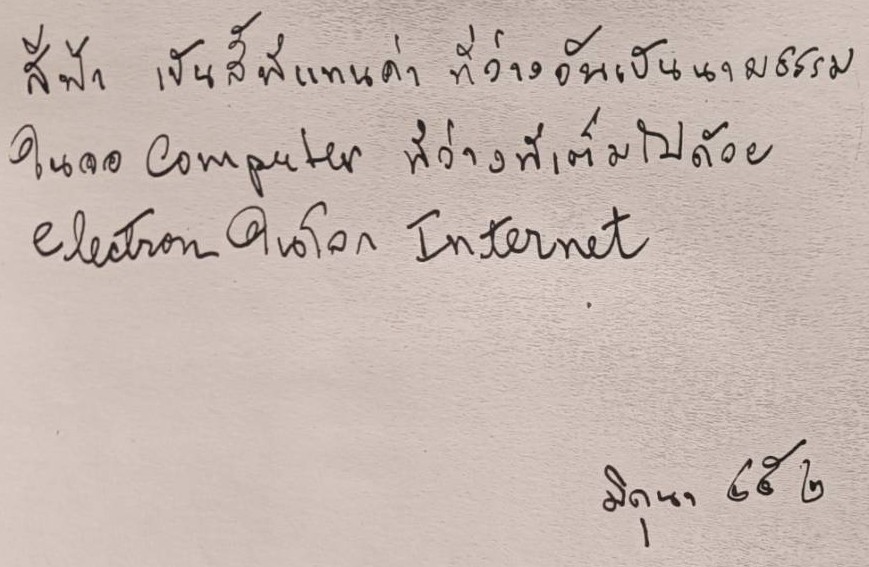 สีฟ้า เป็นสีที่แทนค่า ที่ว่างอันเป็นนามธรรม
ในจอ Computer ที่ว่างที่เต็มไปด้วย
electron ในโลก Internet
มิถุนา